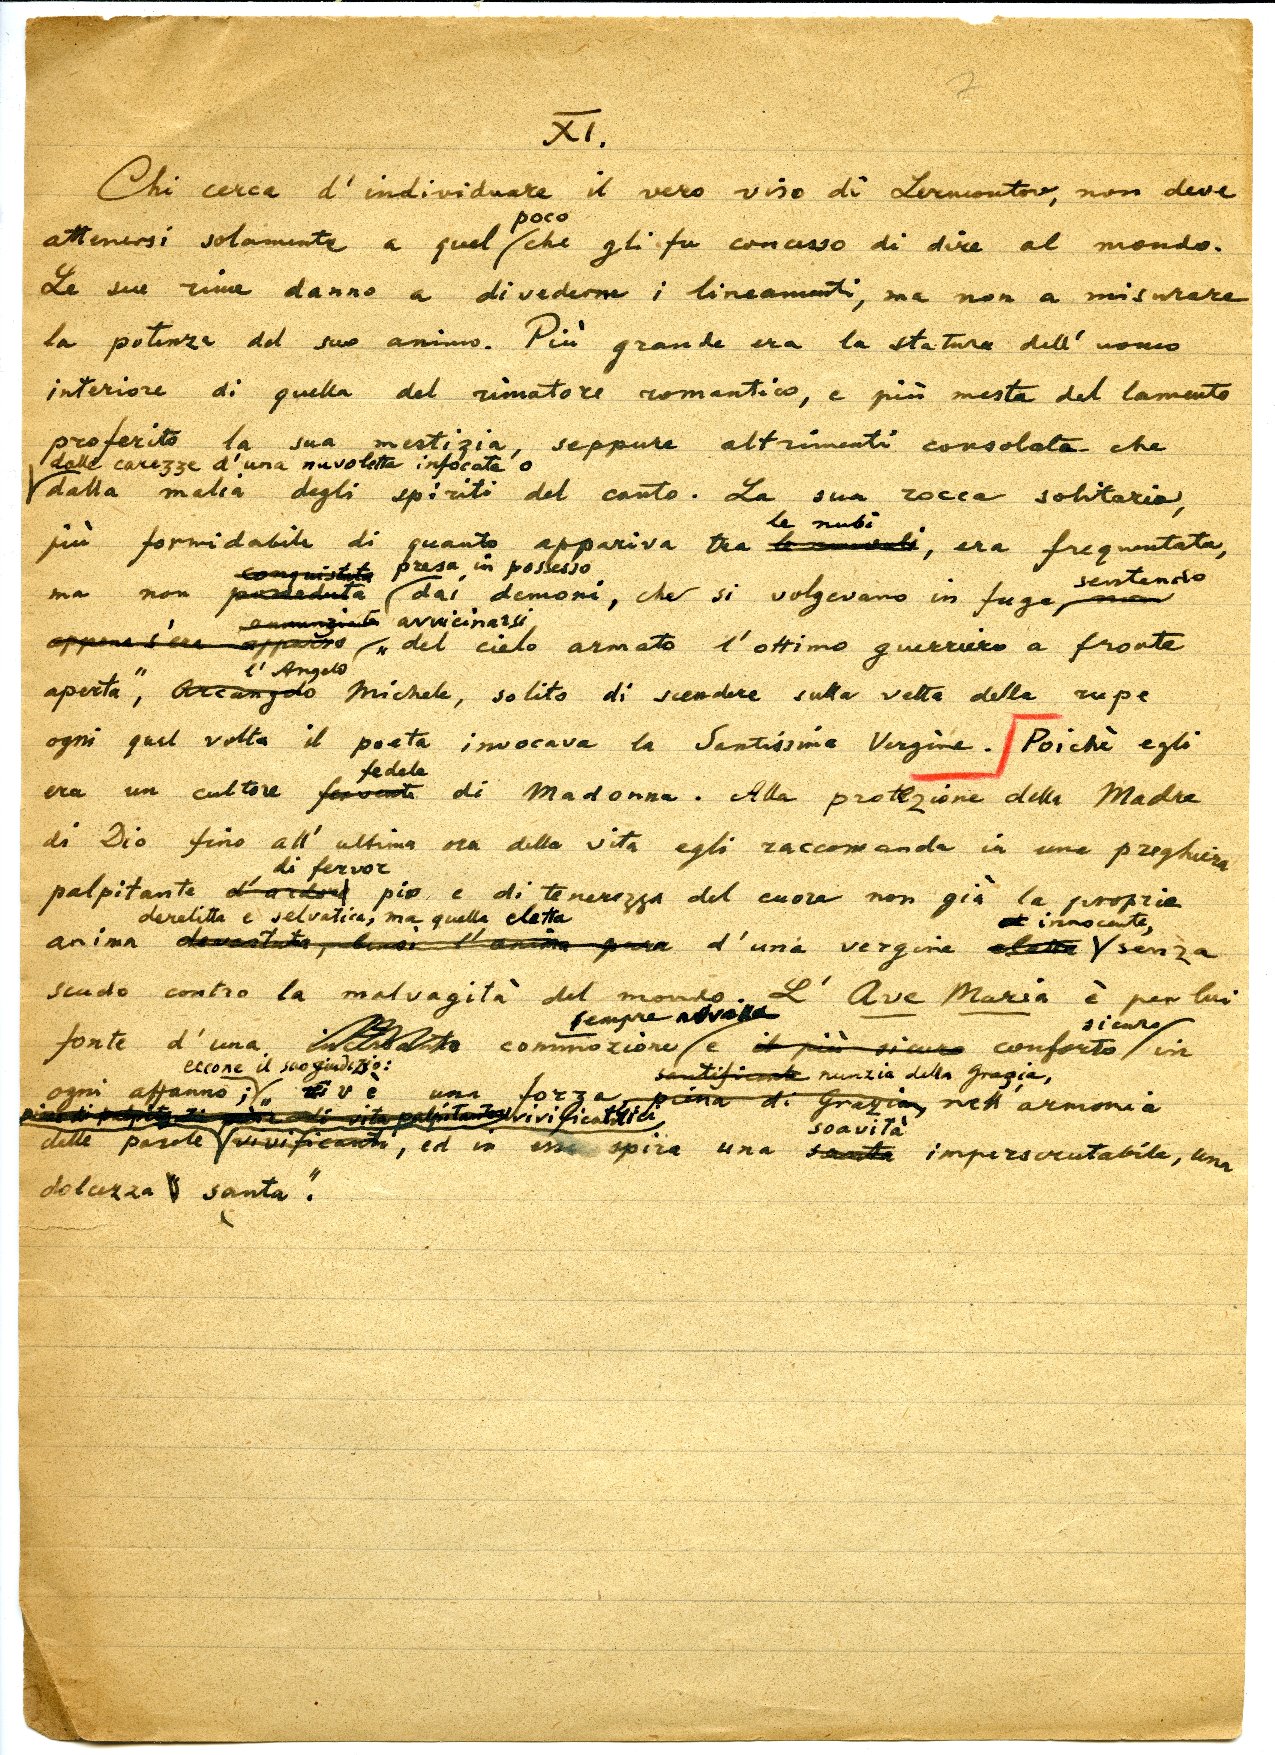 2
XI.
Chi cerca d'individuare il vero viso di Lermontov, non deve
poco
attenersi solamente a quel che gli fu concesso di dire al mondo.
Le sue rime danno a divederne i lineamenti, ma non a misurare
la potenza del suo animo. Più grande era la statura dell'uomo
interiore di quella del rimatore romantico, e più mesta del lamento
proferito la sua mestizia, seppure altrimenti consolata che
dalle carezze d'una nuvoletta infocata o
dalla malia degli spiriti del canto. La sua rocca solitaria,
le nubi
più formidabile di quanto appariva tra le nuvole, era frequentata,
conquistata presa in possesso
sentendo
ma non posseduta dai demoni, che si volgevano in fuga, non
annunziato avvicinarsi
appena s'era apparso „del cielo armato l'ottimo guerriero a fronte
l'Angelo
aperta", Arcangelo Michele, solito di scendere sulla vetta della rupe
ogni qual volta il poeta invocava la Santissima Vergine. Poichè egli
fedele
era un cultore fervente di Madonna. Alla protezione della Madre
di Dio fino all'ultima ora della vita egli raccomanda in una preghiera
di fervor
palpitante d'ardore pio e di tenerezza del cuore non già la propria
derelitta e selvatica, ma quella eletta
innocente,
anima devastata, bensì l'anima pura d'una vergine eletta senza
scudo contro la malvagità del mondo. L'Ave Maria è per lui
sempre novella
sicuro
fonte d'una commozione e il più sicuro conforto in
eccone il suo giudizio:
santificante nunzia della Grazia,
ogni affanno; „v'è una forza, piena di Grazia, nell'armonia
di vita palpitante vivificatrici
soavità
delle parole vivificanti, ed in essa spira una santa imperscrutabile, una
dolcezza santa".